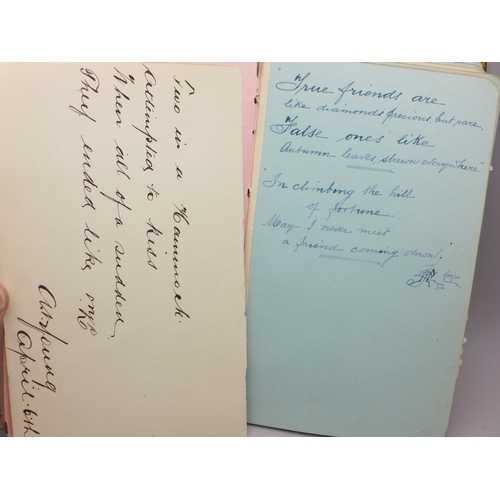 Two in a Hammock.
Attempted to kiss
When all of a sudden
They ended like
A. Young
April 6th
True friends are
like diamonds precious, but rare,
False ones like
Autumn leaves, strewn everywhere
In climbing the hill
of fortune.
May I never meet
a friend coming down.